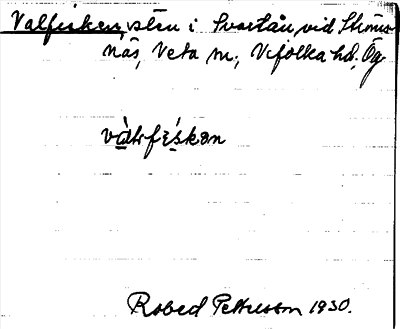 Valfisken, sten i Svartån vid Ströms-
näs, Veta sn., Vifolka hd, Ög.
vàlfískən
Robed Pettersson 1930.